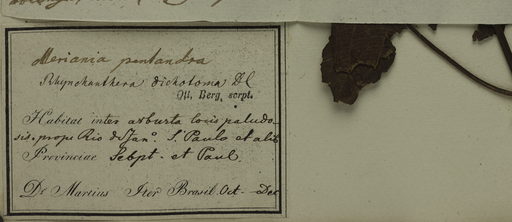 Meriania pentandra
Rhynchanthera dichotoma DC
Ott. Berg. scrpt.
Habitat inter arbusta locis paludo-
sis. prope Rio d Jano. S. Paulo et alib
Provinciae Sebpt. et Paul.
De Martius Iter Brasil. Oct - Dec